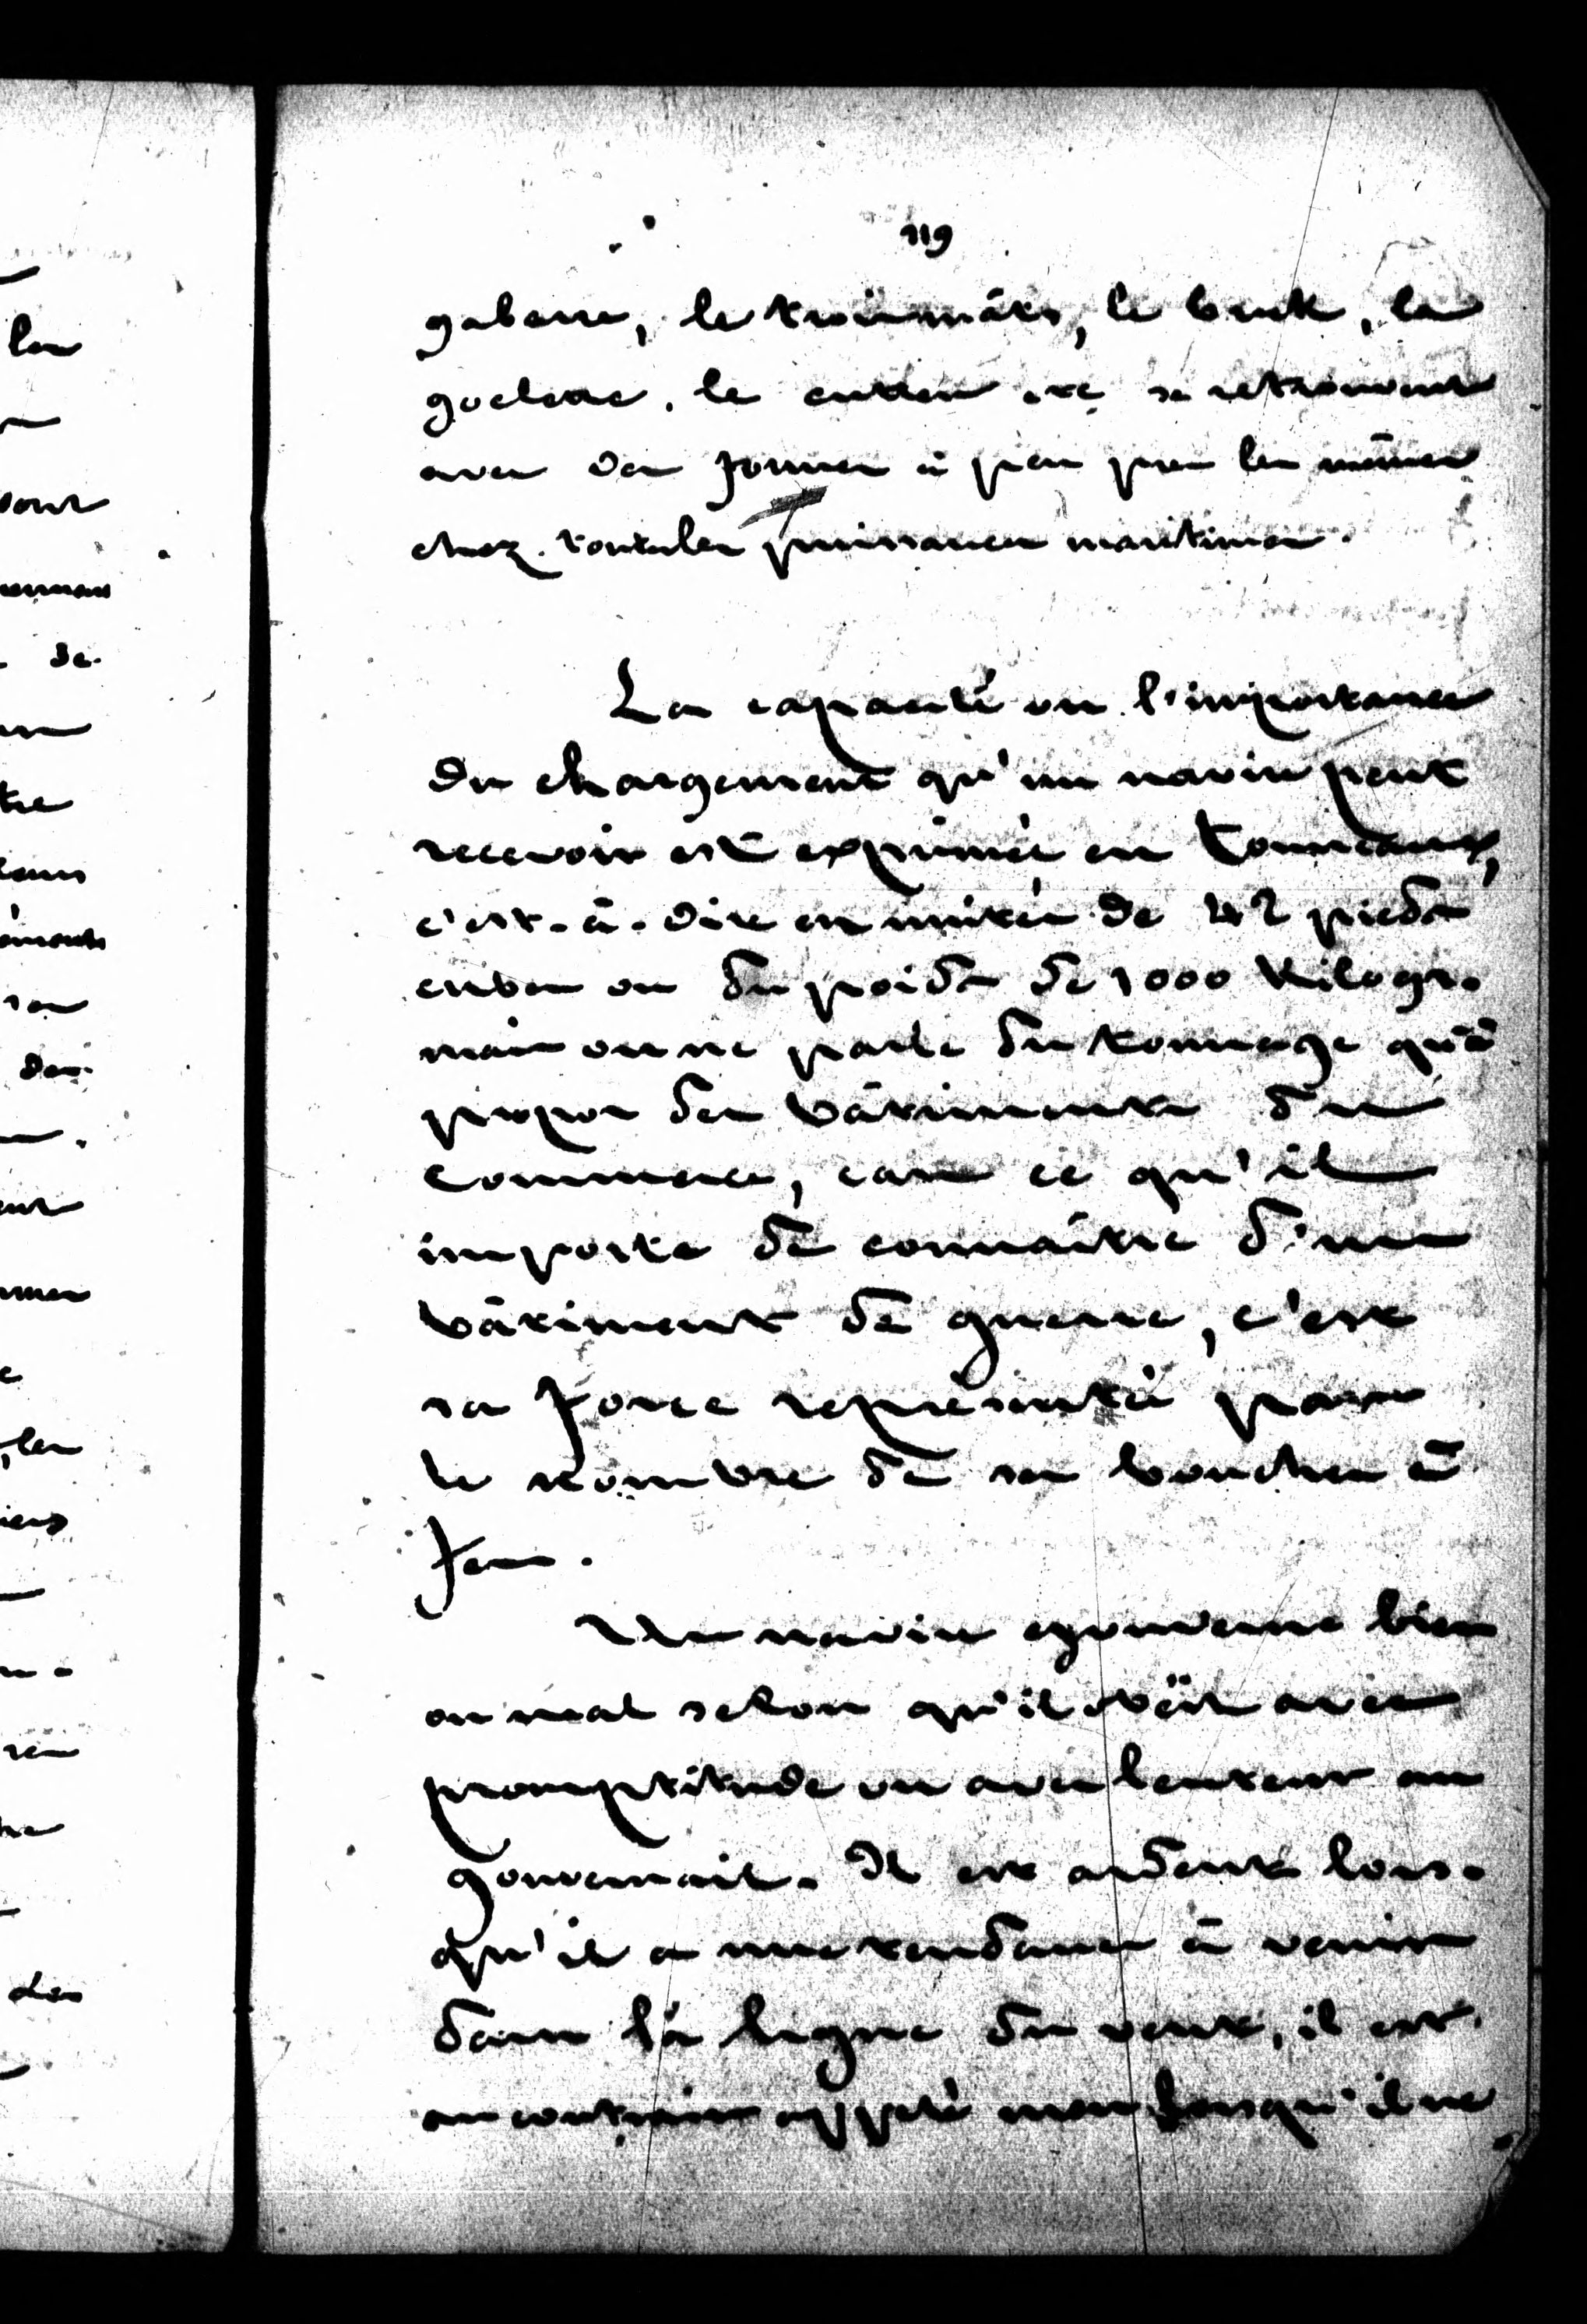 119
gabarre, le troismâts, le brick, la
goelette, le cutter etc se retrouvent
avec des formes à peu près les mêmes
chez toutes les puissances maritimes.
La capacité ou l'importance
du chargement qu'un navire peut
recevoir est exprimée en tonneaux,
c'est-à-dire en unités de 42 pieds
cubes ou du poids de 1000 Kilogr.
mais on ne parle du tonnage qu'à
propos des bâtiments du
commerce, car ce qu'il
importe de connaître d'un
bâtiment de guerre, c'est
sa force représentée par
le nombre de ses bouches à
feu.
Un navire gouverne bien
ou mal selon qu'il obéit avec
promptitude ou avec lenteur au
gouvernail. Il est ardent lors-
qu'il a une tendance à venir
dans la ligne du vent, il est
au contraire appelé mou lorsqu'il ne
la
de
tre
les
des